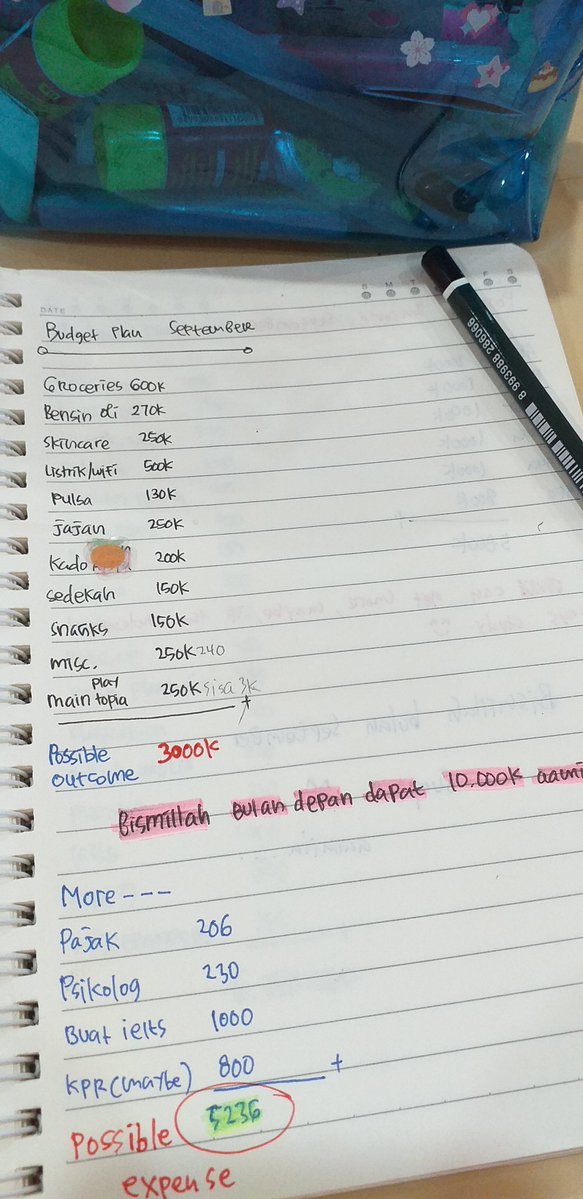 DATE
S M T F S
Budget Plan September
Groceries 600k
Bensin di 270k
skincare 250k
Listrik/wifi 500k
Pulsa 130k
Jajan 250k
Kado 200k
sedekah 150k
snacks 150k
misc. 250k 240
play
main topia 250k sisa 3k
+
Possible 3000k
outcome
Bismillah bulan depan dapat 10.000k aamii
More ---
Pajak 206
Psikolog 230
Buat ielts 1000
KPR (maybe) 800 +
Possible 5236
expense
8 993988 286066